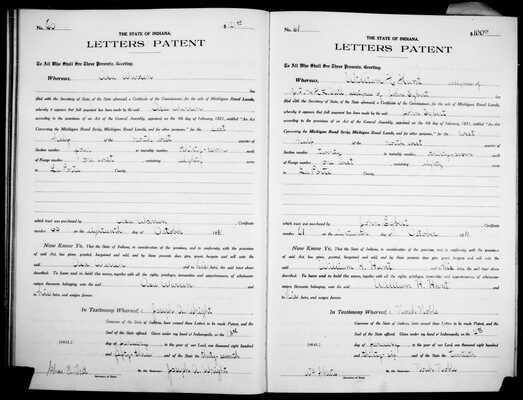 No. 60
THE STATE OF INDIANA.
LETTERS PATENT
To All Who Shall See These Presents, Greeting:
Whereas,
filed with the Secretary of State, the State aforesaid, a Certificate of the Commissioner, for the sale of Michigan Road Lands,
whereby it appears that full payment has been made by the said
according to the provisions of an Act of the General Assembly, approved on the 9th day of February, 1831, entitled "An Act
Concerning the Michigan Road Scrip, Michigan Road Lands, and for other purposes," for the West
Half of the North West quarter of
Section four in township number
of Range number one West containing eighty
in La Porte County,
which tract was purchased by Certificate
number 60 on the eighteenth day of October 183
Now Know Ye, That the State of Indiana, in consideration of the premises, and in conformity with the several provisions
of said Act, has given, granted, bargained and sold, and by these presents does give, grant, bargain and sell unto the
said and to his heirs, the said tract above
described. To have and to hold the same, together with all the rights, privileges, immunities and appurtenances, of whatsoever
nature thereunto belonging, unto the said
his heirs, and assigns forever.
In Testimony Whereof, I, Joseph A. Wright
Governor of the State of Indiana, have caused these Letters to be made Patent, and the
Seal of the State affixed. Given under my hand at Indianapolis, on the
(SEAL) day of in the year of our Lord, one thousand eight hundred
and fifty three and of the State the thirty seventh
Joseph A. Wright
Secretary of State.
No. 61
$100.00
THE STATE OF INDIANA.
LETTERS PATENT
To All Who Shall See These Presents, Greeting:
Whereas, William H. Hunt assignee of
assignee of John Egbert
filed with the Secretary of State, the State aforesaid, a Certificate of the Commissioner, for the sale of Michigan Road Lands,
whereby it appears that full payment has been made by the said John Egbert
according to the provisions of an Act of the General Assembly, approved on the 9th day of February, 1831, entitled "An Act
Concerning the Michigan Road Scrip, Michigan Road Lands, and for other purposes," for the West
Half of the North West quarter of
Section twenty in township number
of Range number one West containing eighty
in La Porte County,
which tract was purchased by John Egbert Certificate
number 61 on the eighteenth day of October 183
Now Know Ye, That the State of Indiana, in consideration of the premises, and in conformity with the several provisions
of said Act, has given, granted, bargained and sold, and by these presents does give, grant, bargain and sell unto the
said William H. Hunt and to his heirs, the said tract above
described. To have and to hold the same, together with all the rights, privileges, immunities and appurtenances, of whatsoever
nature thereunto belonging, unto the said William H. Hunt
his heirs, and assigns forever.
In Testimony Whereof, I, Noah Noble
Governor of the State of Indiana, have caused these Letters to be made Patent, and the
Seal of the State affixed. Given under my hand at Indianapolis, on the
(SEAL) day of in the year of our Lord, one thousand eight hundred
and thirty six and of the State the twentieth
Noah Noble
Secretary of State.